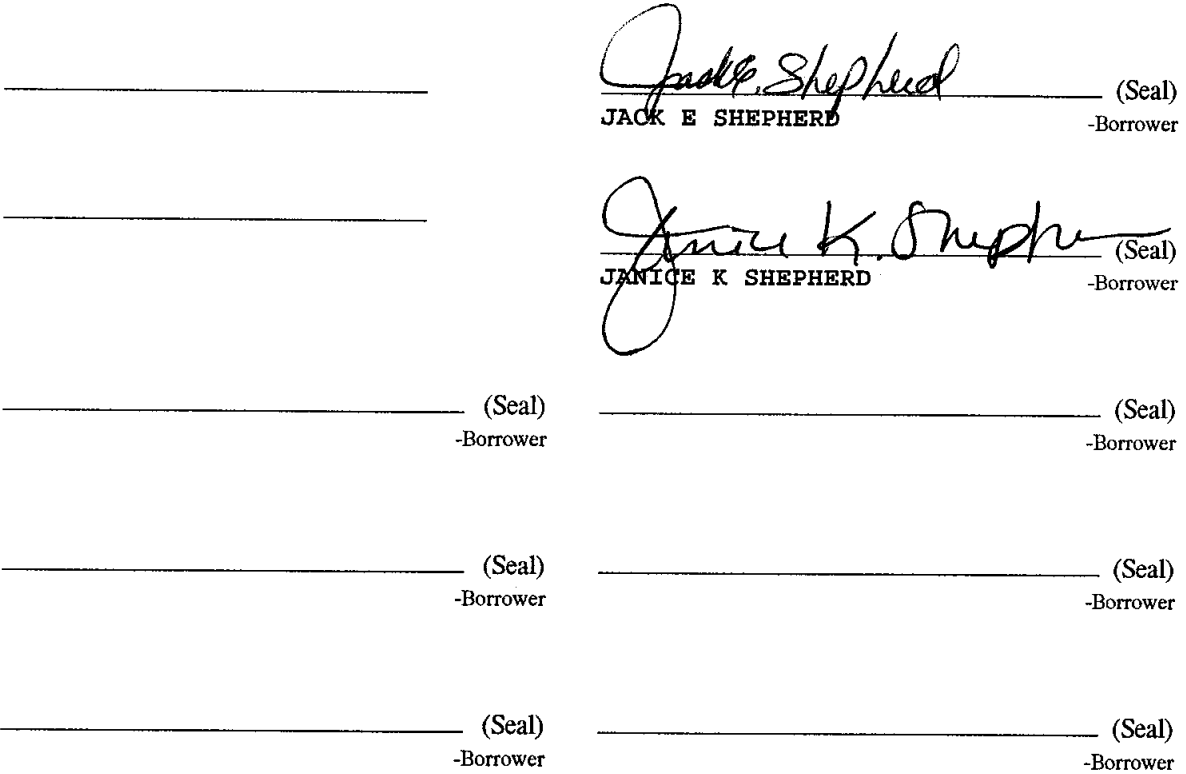 Jack E. Shepherd (Seal)
JACK E SHEPHERD -Borrower
Janice K. Shepher (Seal)
JANICE K SHEPHERD -Borrower
(Seal) (Seal)
-Borrower -Borrower
(Seal) (Seal)
-Borrower -Borrower
(Seal) (Seal)
-Borrower -Borrower